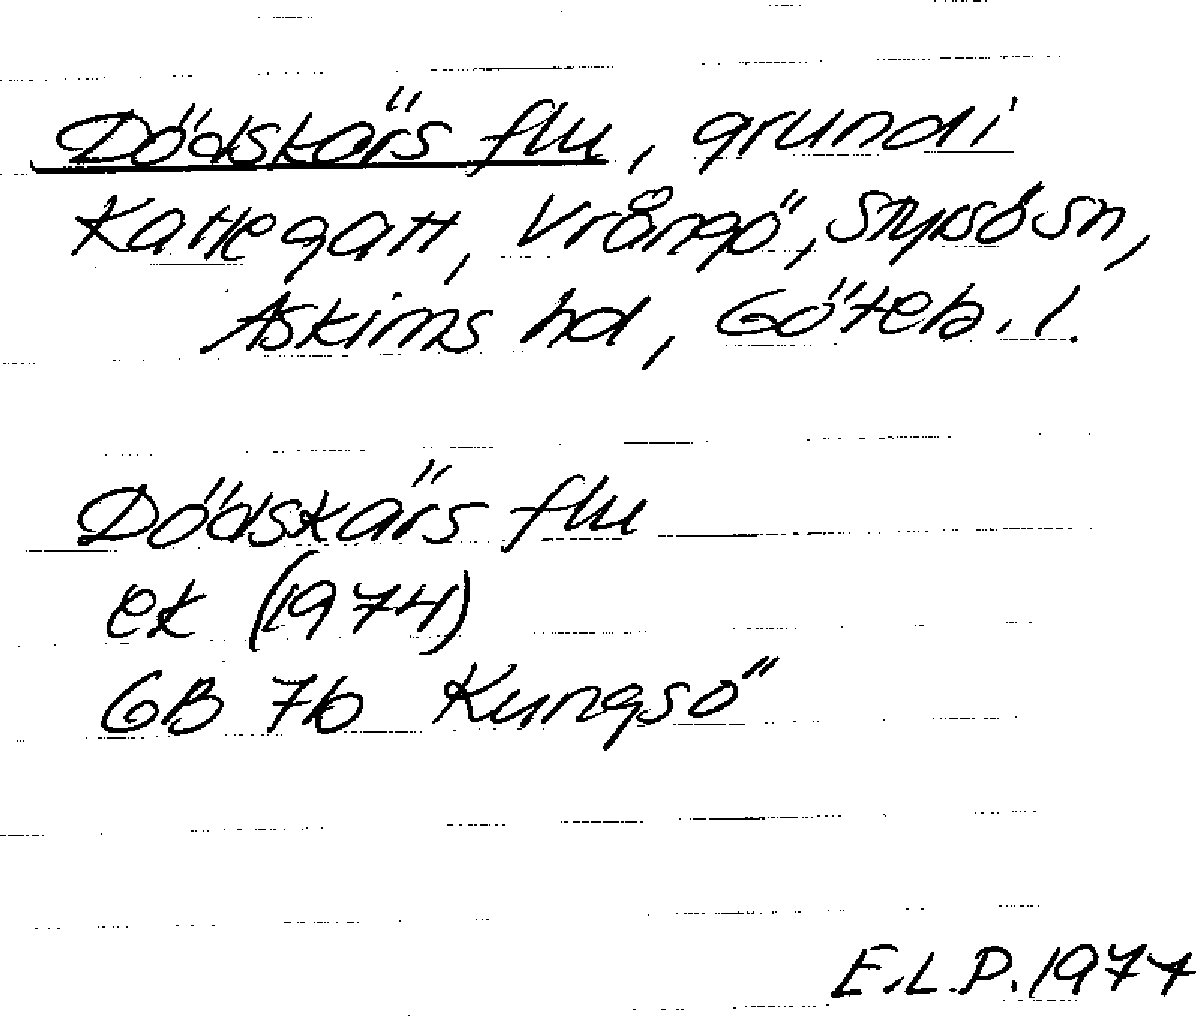 Dödskärs flu, grund i
Kattegatt, Vrångö, Styrsö sn,
Askims hd, Göteb. l.
Dödskärs flu
ek (1974)
GB 7b Kungsö
E.L.P. 1977